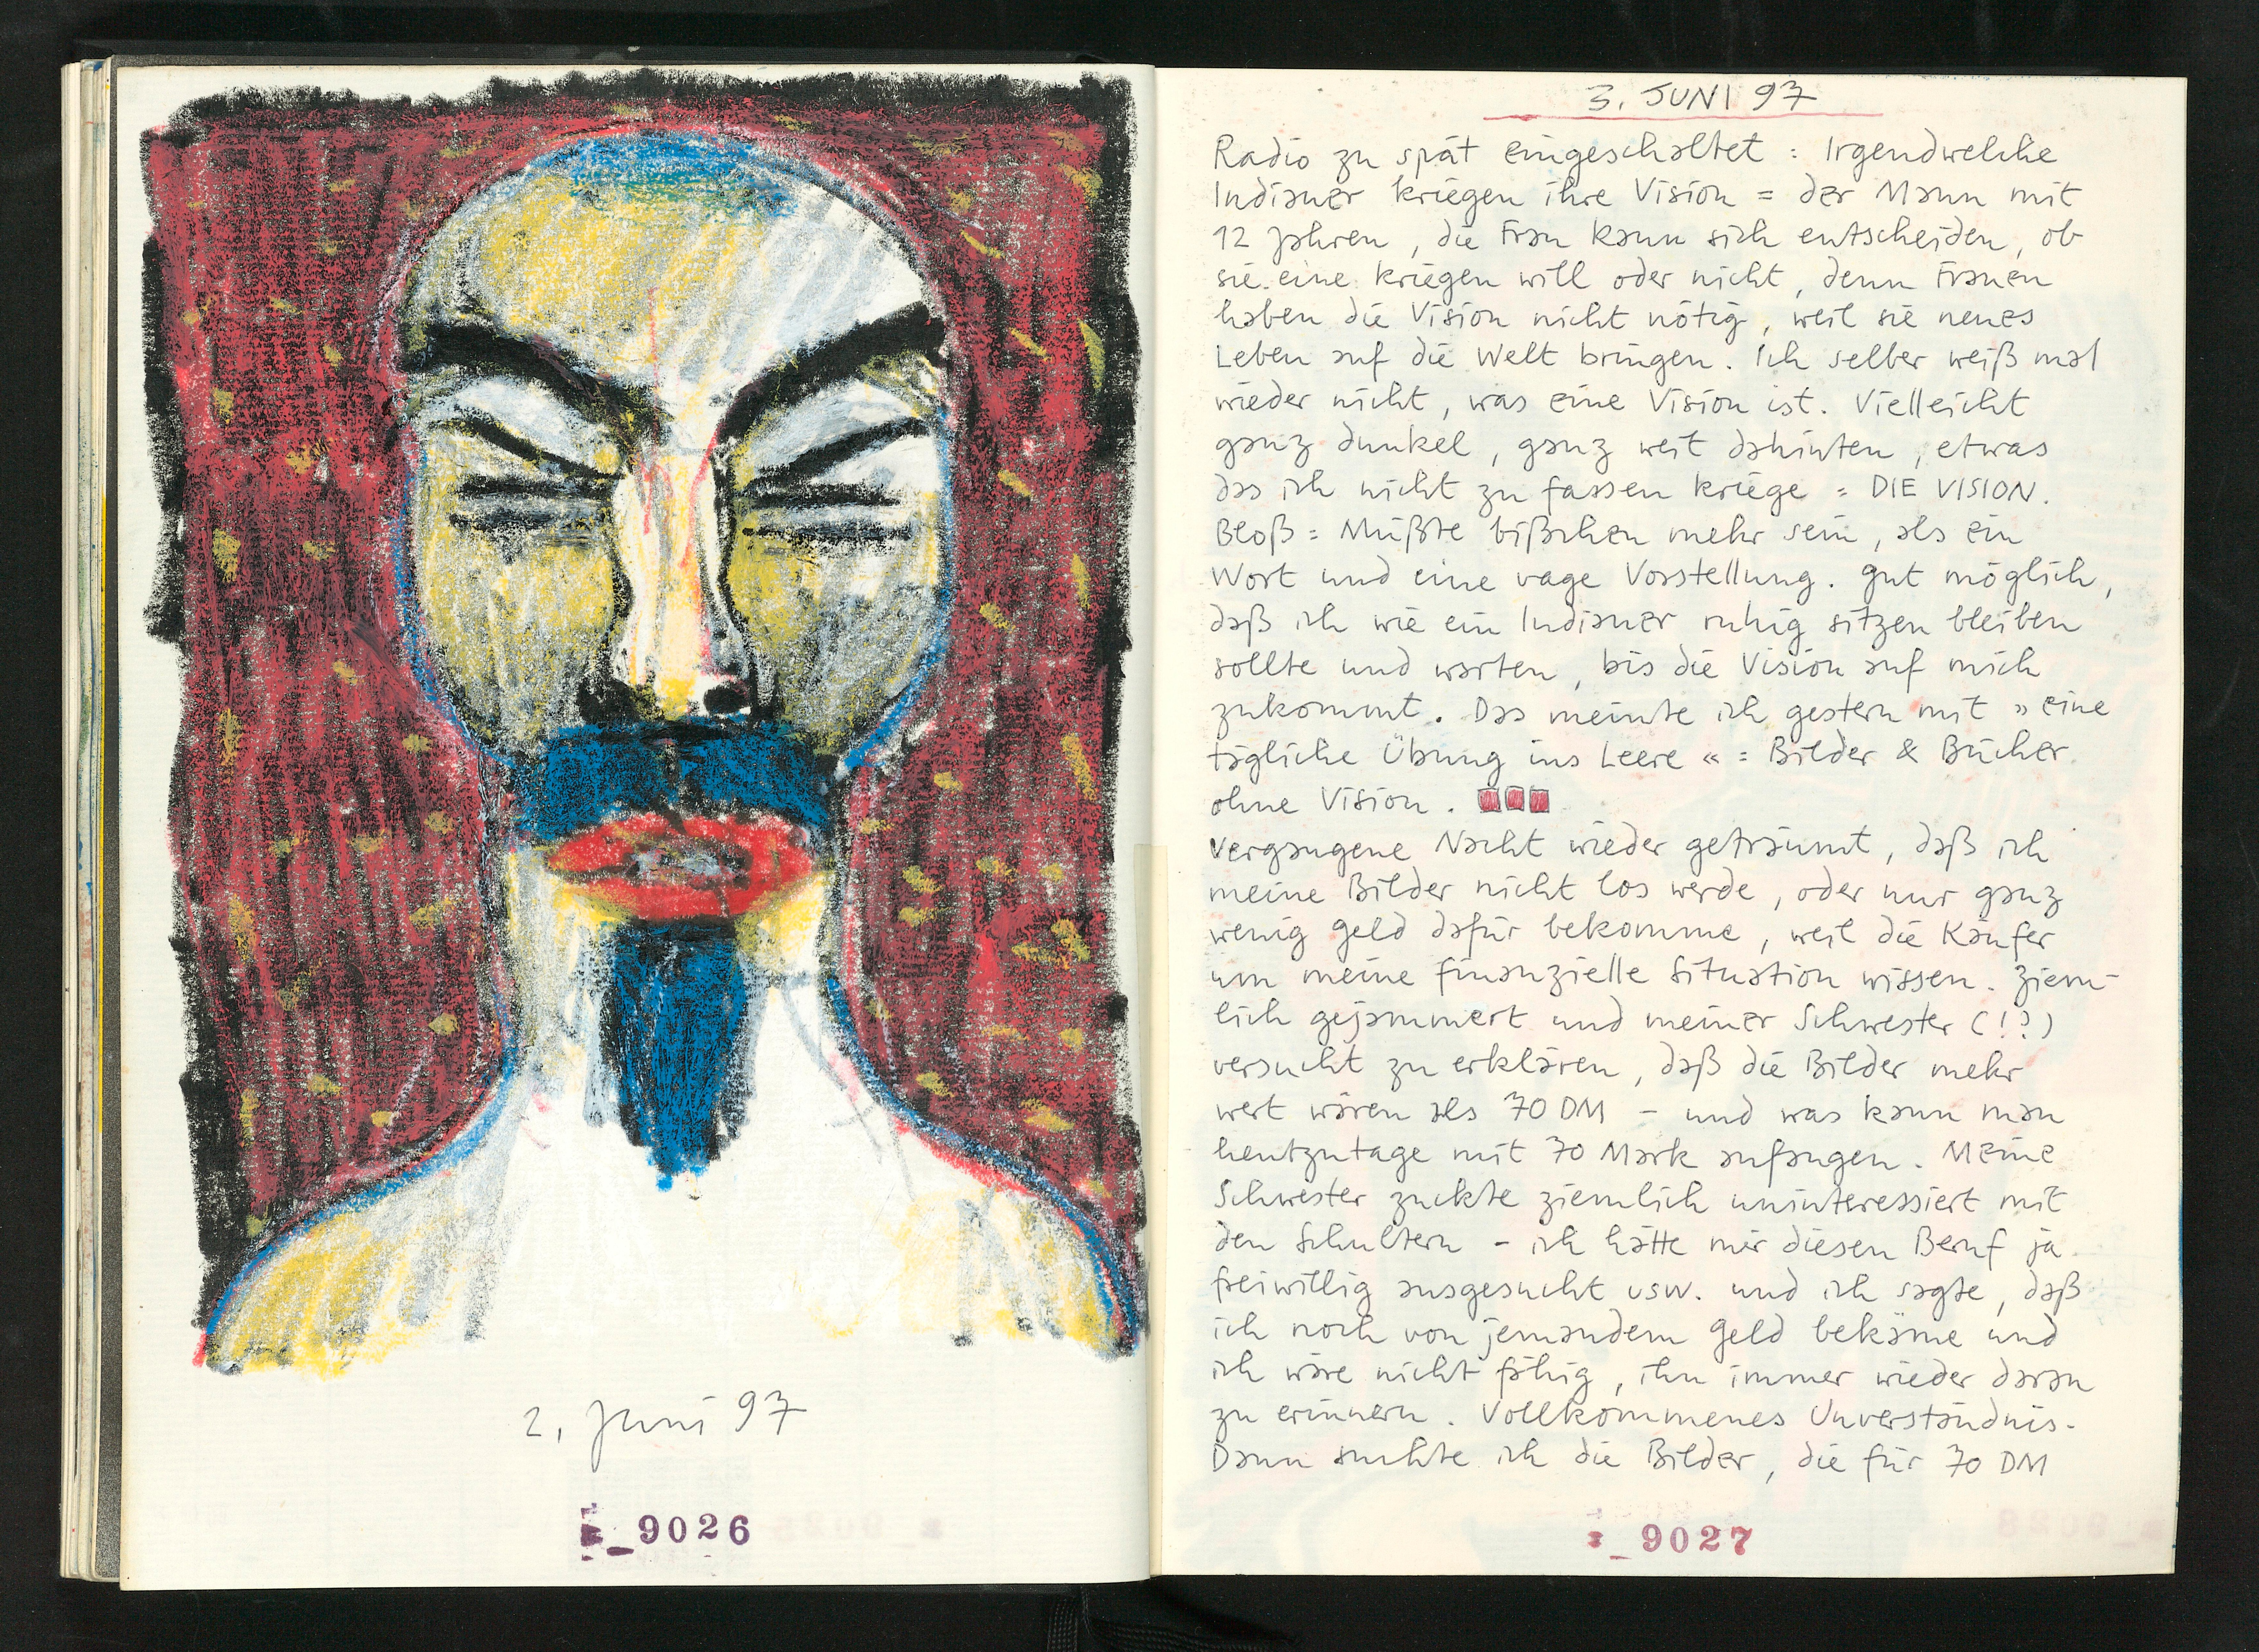 2. Juni 97
9026
3. JUNI 97
Radio zu spät eingeschaltet : Irgendwelche
Indianer kriegen ihre Vision = der Mann mit
12 Jahren, die Frau kann sich entscheiden, ob
sie eine kriegen will oder nicht, denn Frauen
haben die Vision nicht nötig, weil sie neues
Leben auf die Welt bringen. Ich selber weiß mal
wieder nicht, was eine Vision ist. Vielleicht
ganz dunkel, ganz weit dahinten, etwas
das ich nicht zu fassen kriege = DIE VISION.
Bloß = Müßte bißchen mehr sein, als ein
Wort und eine vage Vorstellung. Gut möglich,
daß ich wie ein Indianer ruhig sitzen bleiben
sollte und warten, bis die Vision auf mich
zukommt. Das meinte ich gestern mit » eine
tägliche Übung ins Leere « = Bilder & Bücher
ohne Vision.
Vergangene Nacht wieder geträumt, daß ich
meine Bilder nicht los werde, oder nur ganz
wenig Geld dafür bekomme, weil die Käufer
um meine finanzielle Situation wissen. Ziem-
lich gejammert und meiner Schwester (!?)
versucht zu erklären, daß die Bilder mehr
wert wären als 70 DM – und was kann man
heutzutage mit 70 Mark anfangen. Meine
Schwester zuckte ziemlich uninteressiert mit
den Schultern – ich hätte mir diesen Beruf ja
freiwillig ausgesucht usw. und ich sagte, daß
ich noch von jemandem Geld bekäme und
ich wäre nicht fähig, ihn immer wieder daran
zu erinnern. Vollkommenes Unverständnis.
Dann suchte ich die Bilder, die für 70 DM
9027